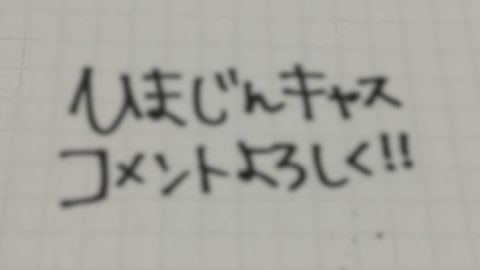 ひまじんキャス
コメントよろしく!!